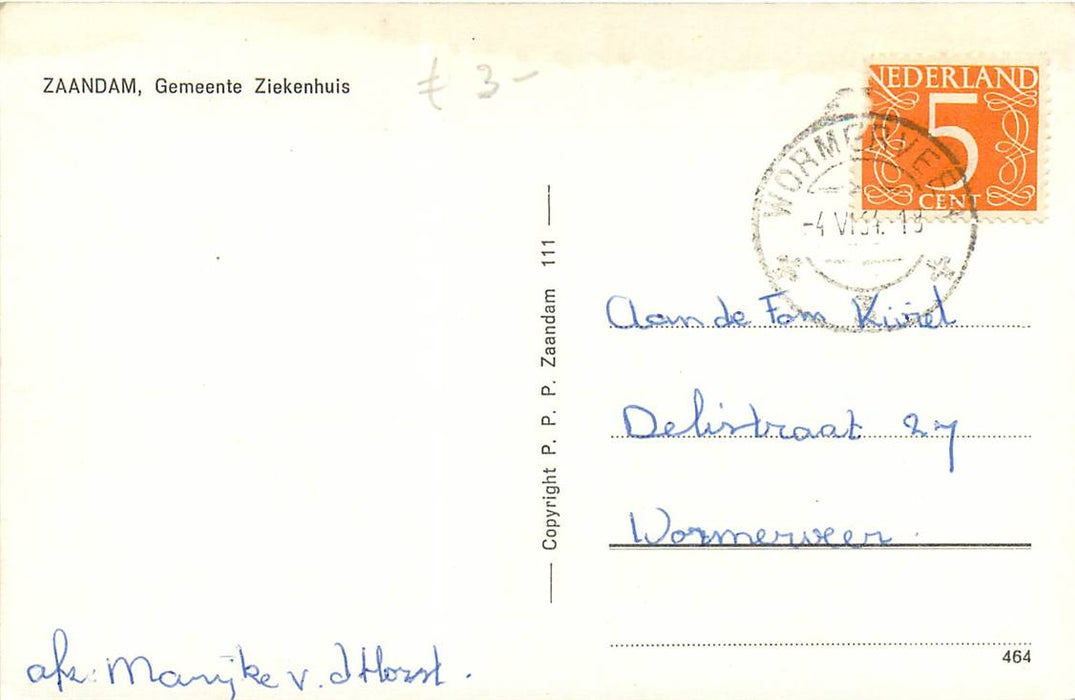 ZAANDAM, Gemeente Ziekenhuis
€ 3-
NEDERLAND
5
CENT
WORMERVEER
-4 VI 64.-18
Copyright P. P. P. Zaandam 111
Aan de Fam
Delistraat 27
Wormerveer.
464
afz: Marijke v. d Horst.